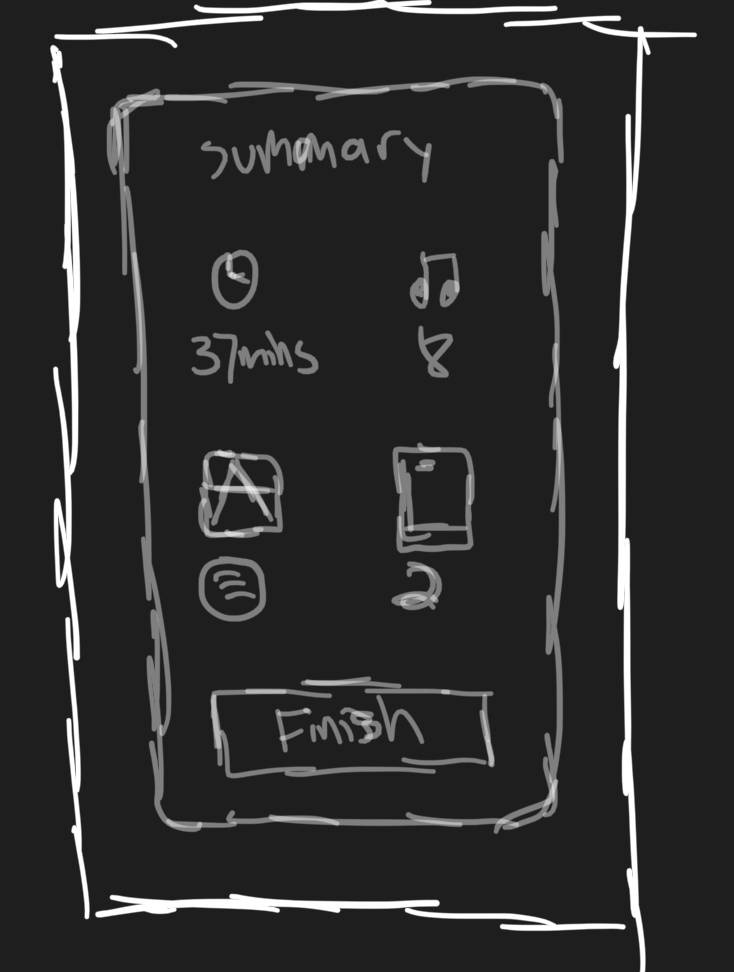 summary
37mins 8
2
Finish